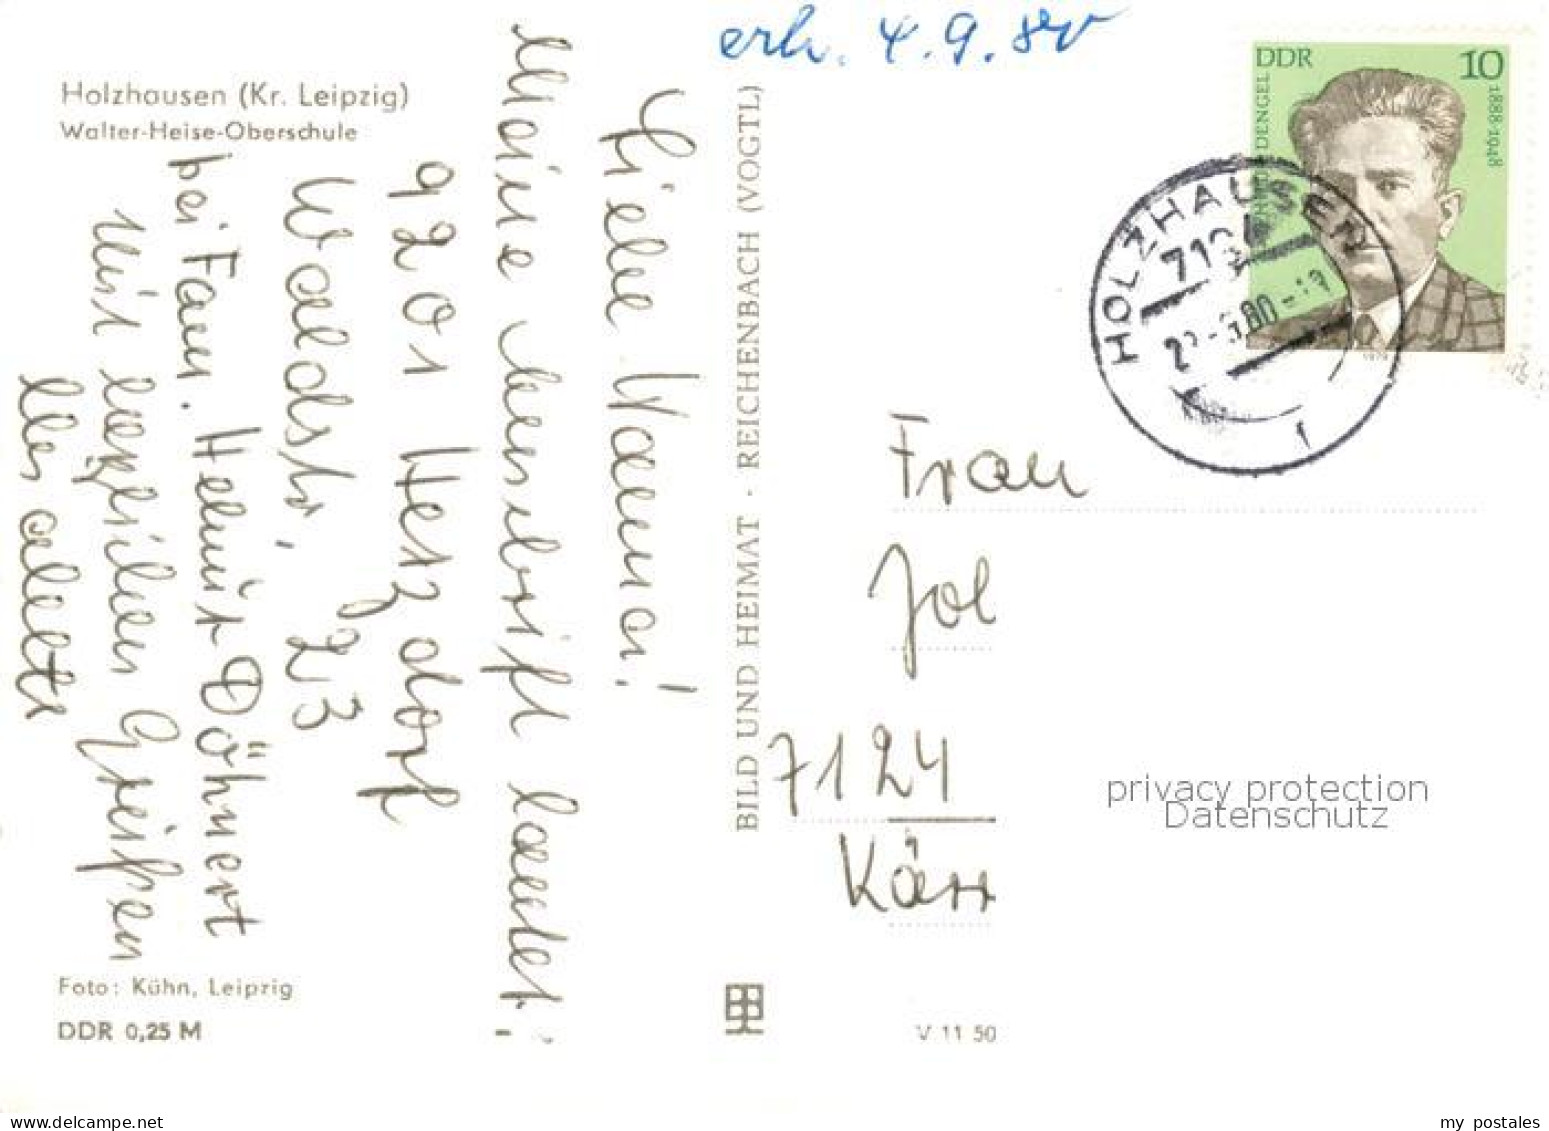 erh. 4.9.80
Holzhausen (Kr. Leipzig)
Walter-Heise-Oberschule
Liebe Mama!
Meine Anschrift lautet:
9201 Hetzdorf
Waldstr. 23
bei Fam. Helmut Döhnert
Mit herzlichen Grüßen
Foto: Kühn, Leipzig
DDR 0,25 M
BILD UND HEIMAT · REICHENBACH (VOGTL)
V 11 50
DDR 10
DENGEL
1888-1948
1979
HOLZHAUSEN
Frau
7124
privacy protection
Datenschutz
my postales